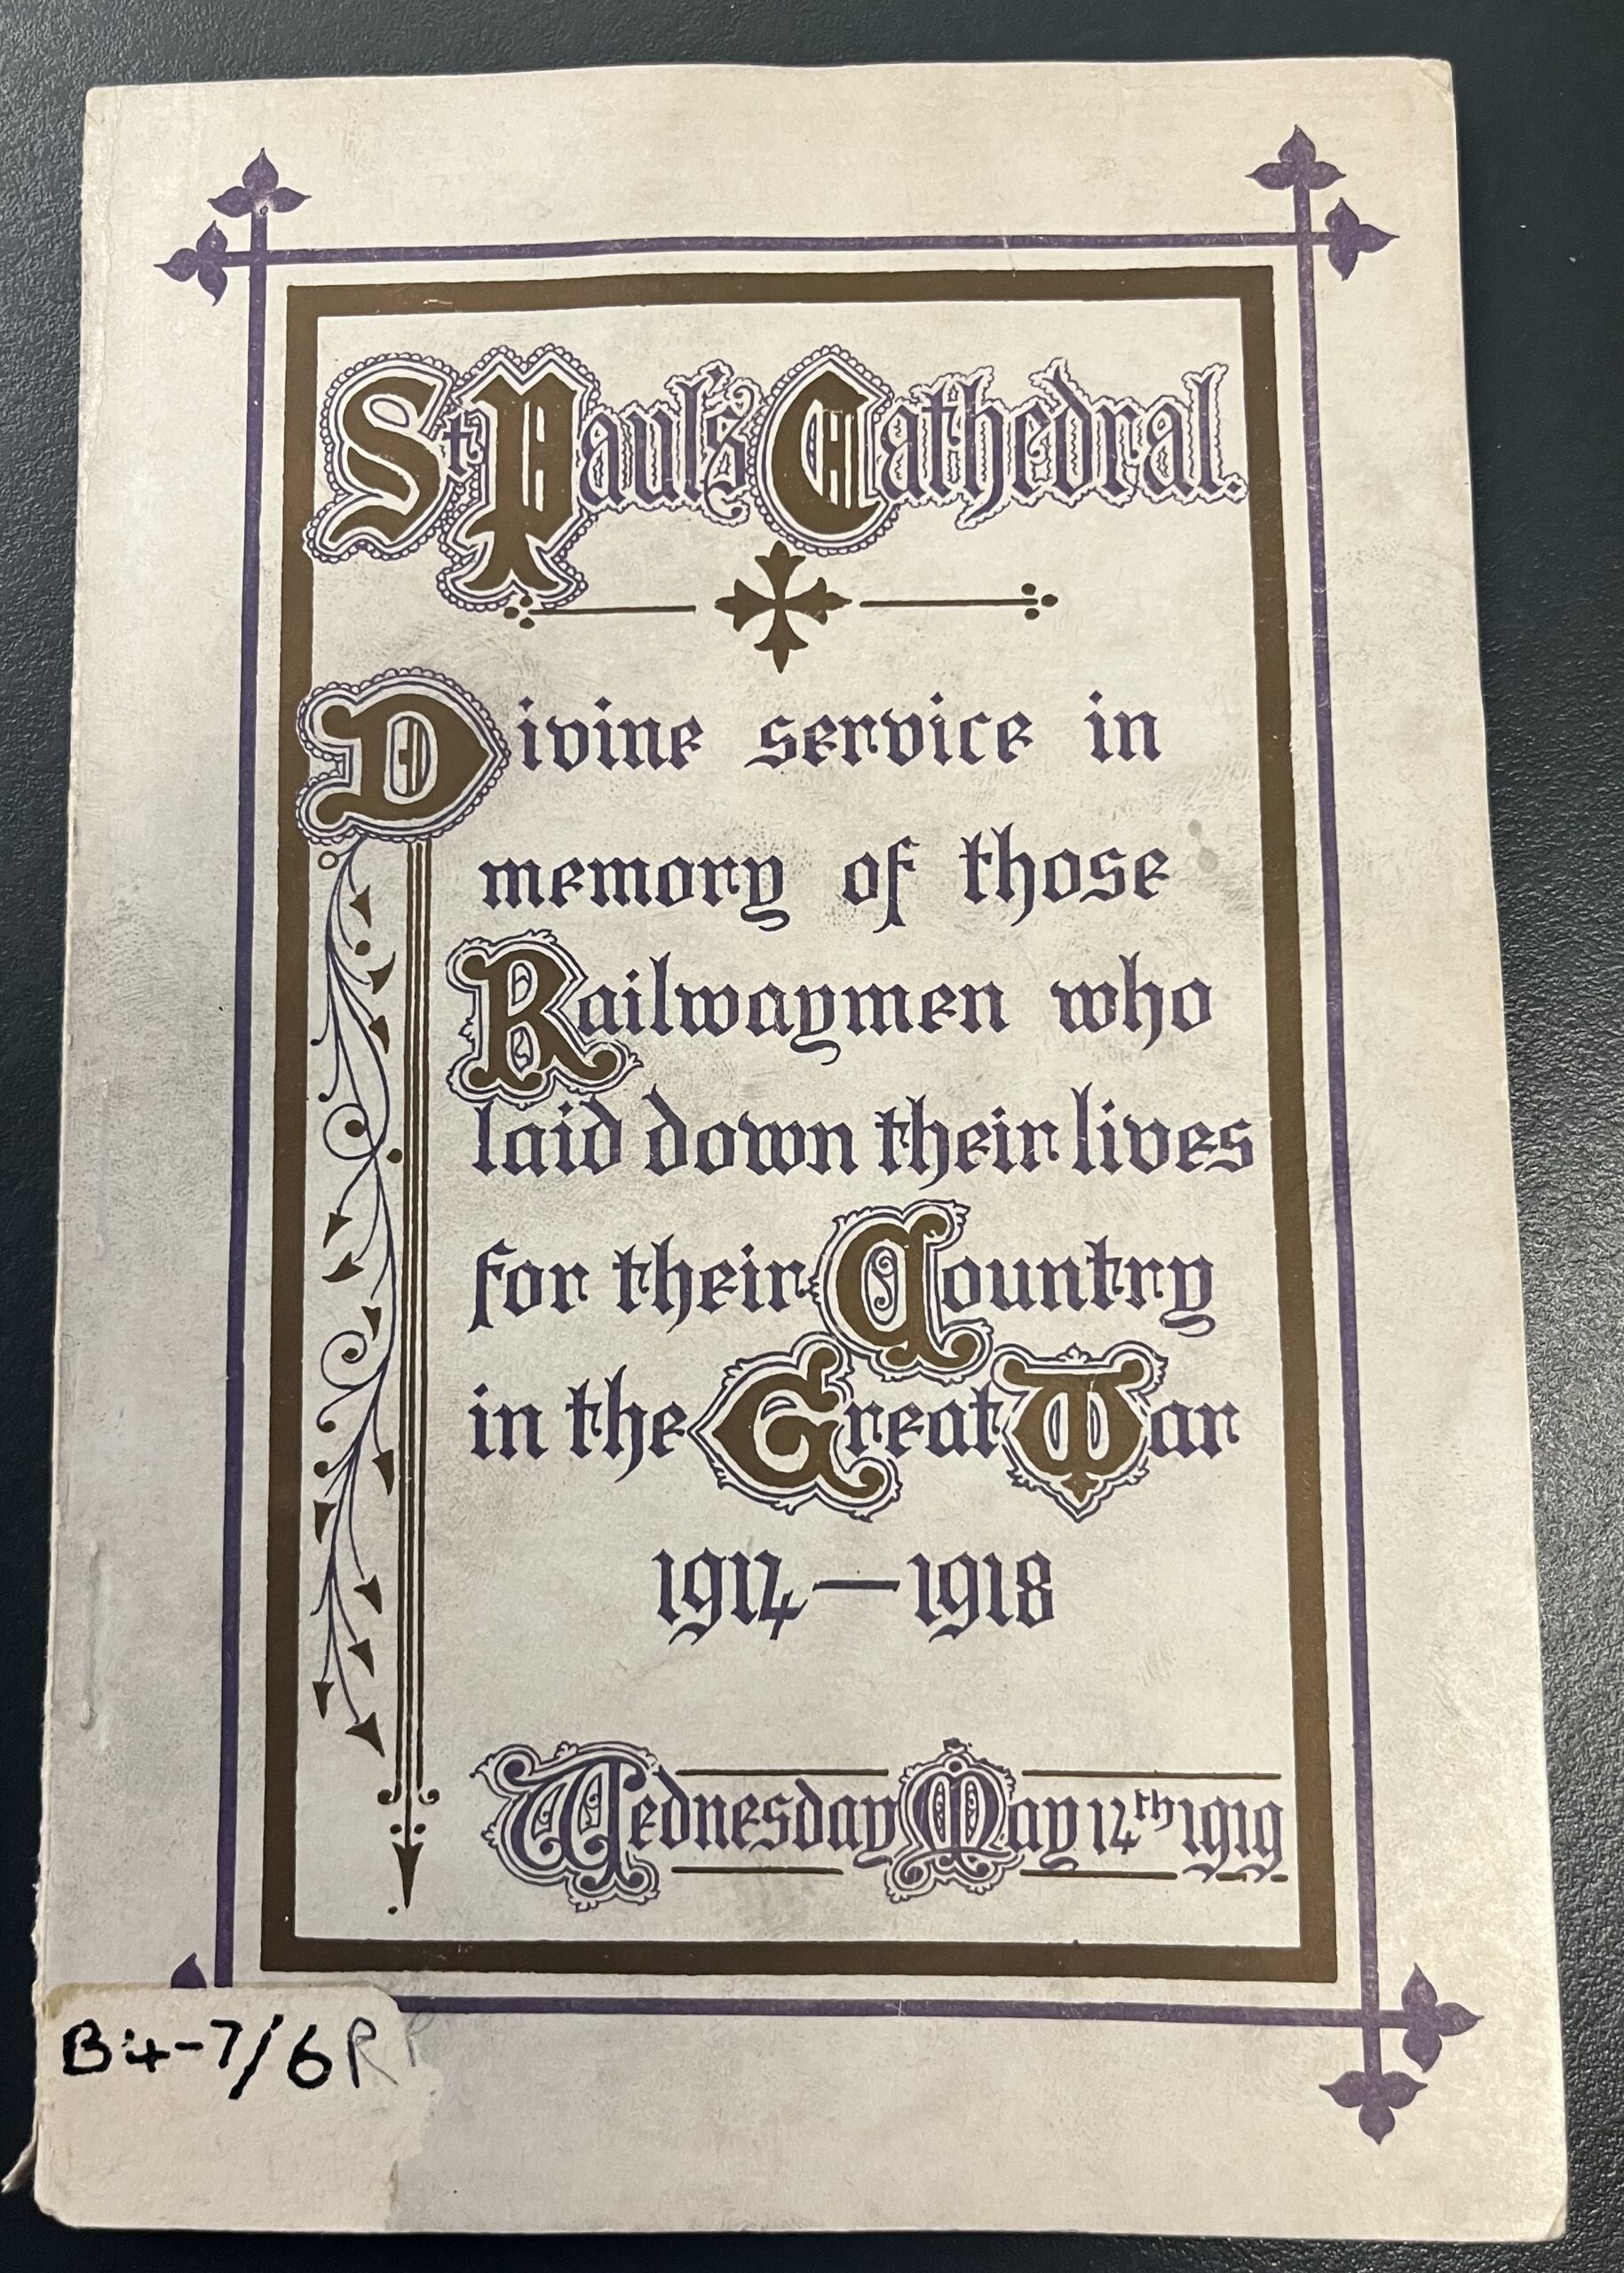 St. Paul's Cathedral.
Divine service in
memory of those
Railwaymen who
laid down their lives
for their Country
in the Great War
1914—1918
Wednesday May 14th 1919
B4-7/6RP